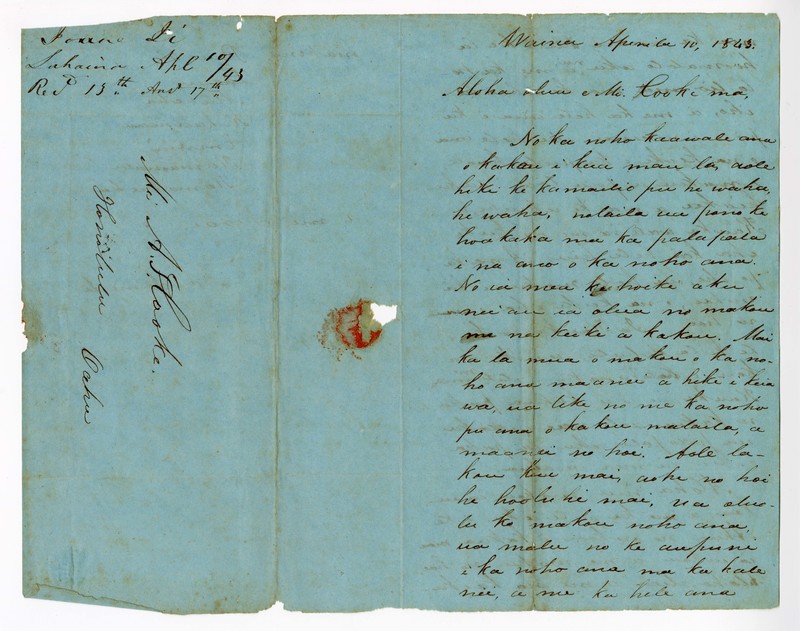 Ioane Ii
Lahaina Apl 10/43
Recd 15th Ansd 17th
Mi A. S. Cooke.
Honolulu Oahu
Wainee Aperila 10, 1843.
Aloha olua e Mi. Cooke ma,
No ka noho kaawale ana
o kakou i keia mau la, aole
hiki ke kamailio pu he waha,
he waha, nolaila ua pono ke
hoakaka ma ka palapala
i na ano o ka noho ana.
No ia mea ke hoike aku
nei au ia olua no makou
me na keiki a kakou. Mai
ka la mua o makou o ka no-
ho ana maanei a hiki i keia
wa, ua like no me ka noho
pu ana o kakou malaila, a
maanei no hoi. Aole la-
kou keu mai, aohe no hoi
he hooluhi mai, ua olu-
lu ko makou noho ana,
ua malu no ke aupuni
i ka noho ana ma ka hale
nei, a me ka hele ana